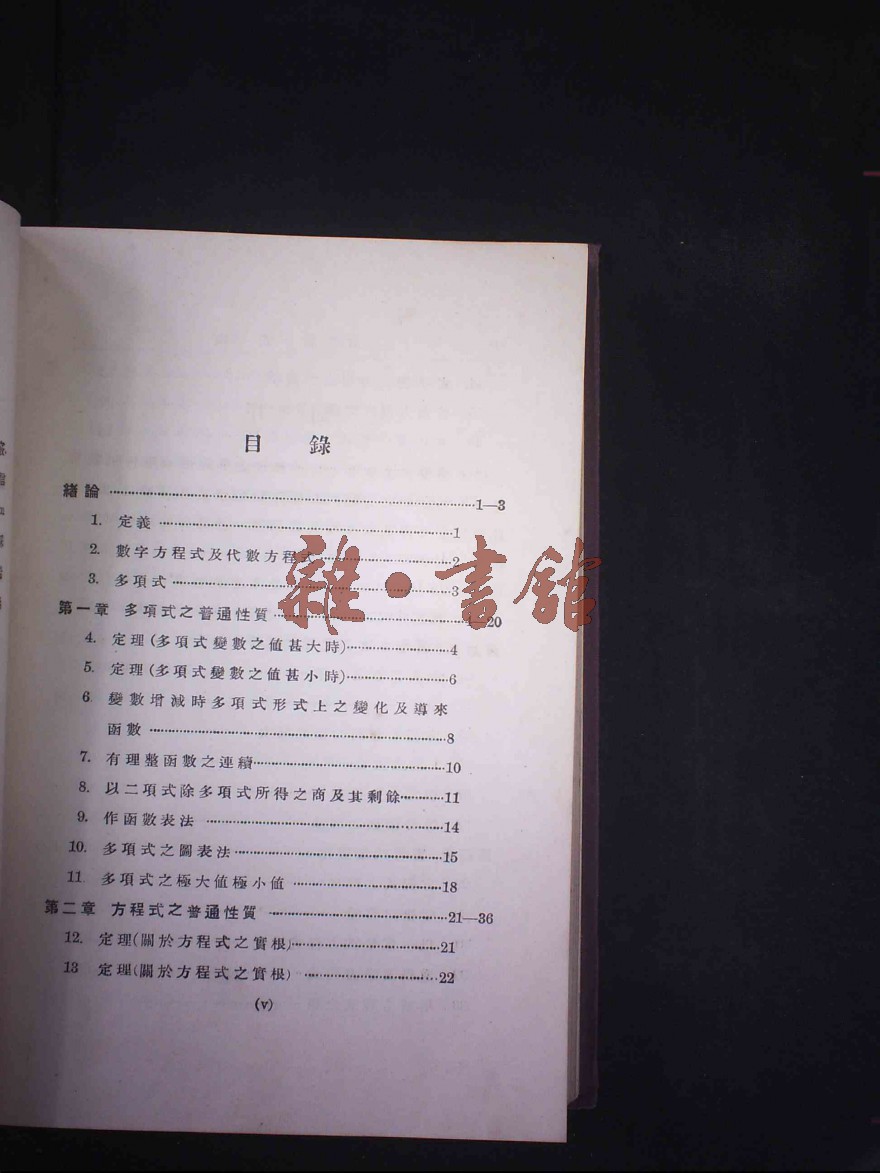 目錄
緒論……1—3
1. 定義……1
2. 數字方程式及代數方程式……2
3. 多項式……3
第一章 多項式之普通性質……4—20
4. 定理(多項式變數之值甚大時)……4
5. 定理(多項式變數之值甚小時)……6
6 變數增減時多項式形式上之變化及導來
函數……8
7. 有理整函數之連續……10
8. 以二項式除多項式所得之商及其剩餘……11
9. 作函數表法……14
10. 多項式之圖表法……15
11 多項式之極大值極小值……18
第二章 方程式之普通性質……21—36
12. 定理(關於方程式之實根)……21
13 定理(關於方程式之實根)……22
(v)
雜·書館